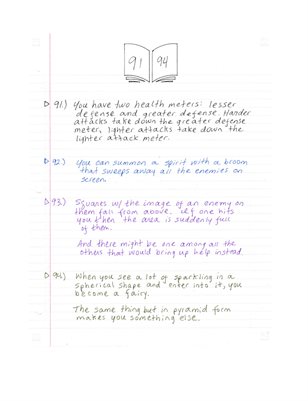 91 94
91.) You have two health meters: lesser
defense and greater defense. Harder
attacks take down the greater defense
meter, lighter attacks take down the
lighter attack meter.
92.) You can summon a spirit with a broom
that sweeps away all the enemies on
screen.
93.) Squares w/ the image of an enemy on
them fall from above. If one hits
you then the area is suddenly full
of them.
And there might be one among all the
others that would bring up help instead.
94.) When you see a lot of sparkling in a
spherical shape and enter into it, you
become a fairy.
The same thing but in pyramid form
makes you something else.